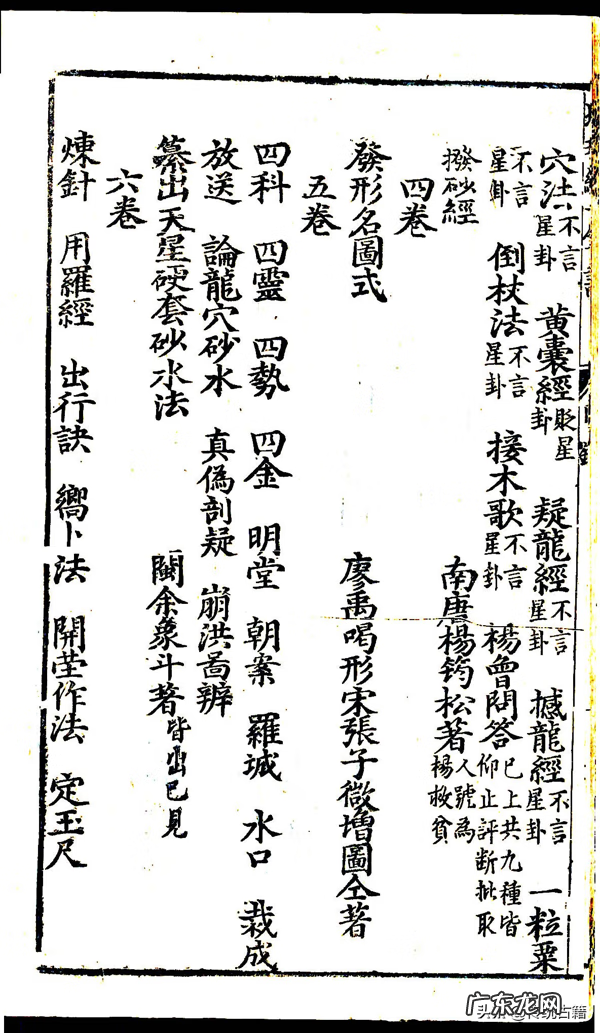 穴法不言星卦 黃囊經貶星卦 疑龍經不言星卦 撼龍經不言星卦 一粒粟
不言星卦 倒杖法不言星卦 接木歌不言星卦 楊曾問答已上共九種皆仰止評斷批取
撥砂經 南唐楊筠松著人號為楊救貧
四卷
發形名圖式 廖禹喝形宋張子微增圖仝著
五卷
四科 四靈 四勢 四金 明堂 朝案 羅城 水口 裁成
放送 論龍穴砂水 真偽剖疑 崩洪啚辨
纂出天星硬套砂水法 閩余象斗著皆出已見
六卷
煉針 用羅經 出行訣 嚮卜法 開茔作法 定玉尺
广东龙网